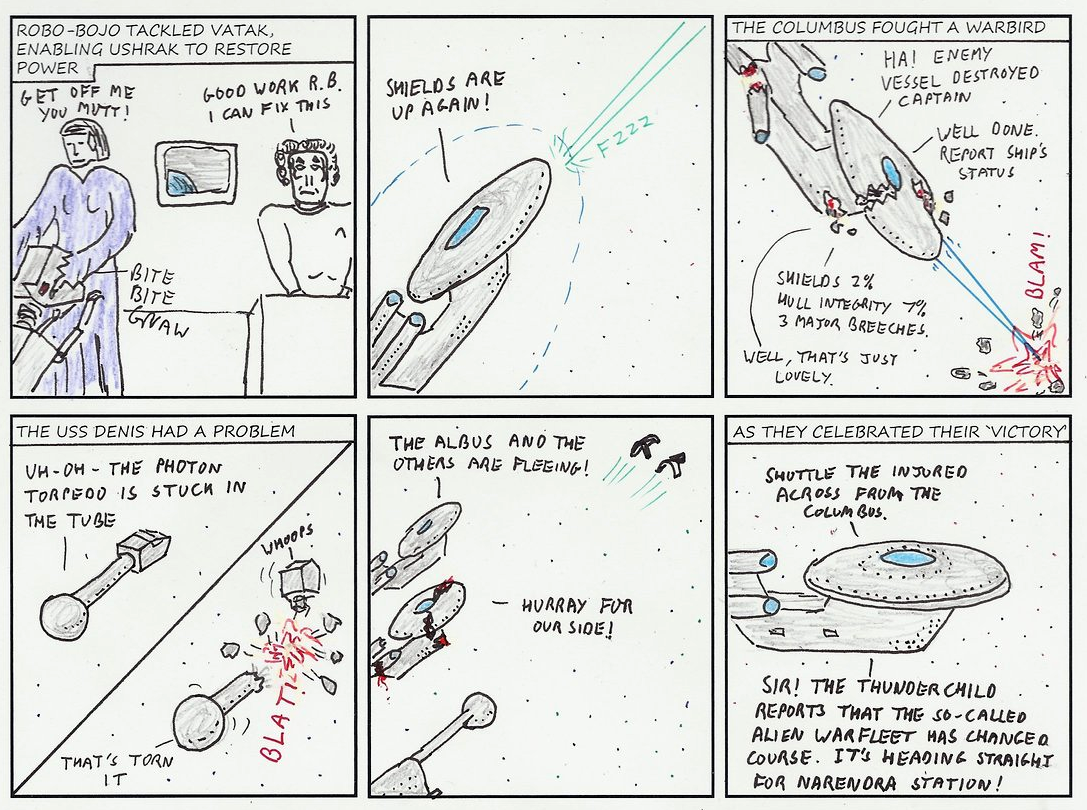 ROBO-BOJO TACKLED VATAK,
ENABLING USHRAK TO RESTORE
POWER
GET OFF ME
YOU MUTT!
GOOD WORK R.B.
I CAN FIX THIS
BITE
BITE
GNAW
SHIELDS ARE
UP AGAIN!
FZZZ
THE COLUMBUS FOUGHT A WARBIRD
HA! ENEMY
VESSEL DESTROYED
CAPTAIN
WELL DONE.
REPORT SHIP'S
STATUS
SHIELDS 2%
HULL INTEGRITY 7%
3 MAJOR BREECHES.
WELL, THAT'S JUST
LOVELY.
BLAM!
THE USS DENIS HAD A PROBLEM
UH-OH - THE PHOTON
TORPEDO IS STUCK IN
THE TUBE
WHOOPS
THAT'S TORN
IT
THE ALBUS AND THE
OTHERS ARE FLEEING!
HURRAY FOR
OUR SIDE!
AS THEY CELEBRATED THEIR 'VICTORY'
SHUTTLE THE INJURED
ACROSS FROM THE
COLUMBUS.
SIR! THE THUNDERCHILD
REPORTS THAT THE SO-CALLED
ALIEN WARFLEET HAS CHANGED
COURSE. IT'S HEADING STRAIGHT
FOR NARENDRA STATION!